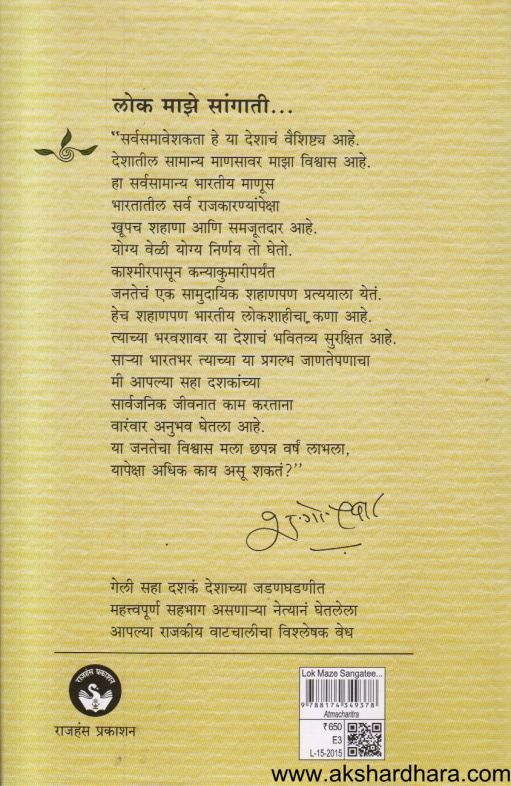 लोक माझे सांगाती...
"सर्वसमावेशकता हे या देशाचं वैशिष्ट्य आहे.
देशातील सामान्य माणसावर माझा विश्वास आहे.
हा सर्वसामान्य भारतीय माणूस
भारतातील सर्व राजकारण्यांपेक्षा
खूपच शहाणा आणि समजूतदार आहे.
योग्य वेळी योग्य निर्णय तो घेतो.
काश्मीरपासून कन्याकुमारीपर्यंत
जनतेचं एक सामुदायिक शहाणपण प्रत्ययाला येतं.
हेच शहाणपण भारतीय लोकशाहीचा कणा आहे.
त्याच्या भरवशावर या देशाचं भवितव्य सुरक्षित आहे.
साऱ्या भारतभर त्याच्या या प्रगल्भ जाणतेपणाचा
मी आपल्या सहा दशकांच्या
सार्वजनिक जीवनात काम करताना
वारंवार अनुभव घेतला आहे.
या जनतेचा विश्वास मला छपन्न वर्षं लाभला,
यापेक्षा अधिक काय असू शकतं?"
श. गो. पवार
गेली सहा दशकं देशाच्या जडणघडणीत
महत्त्वपूर्ण सहभाग असणाऱ्या नेत्यानं घेतलेला
आपल्या राजकीय वाटचालीचा विश्लेषक वेध
राजहंस प्रकाशन
राजहंस प्रकाशन
Lok Maze Sangatee...
9 788174 349378
Atmacharitra
₹ 650
E3
L-15-2015
www.akshardhara.com